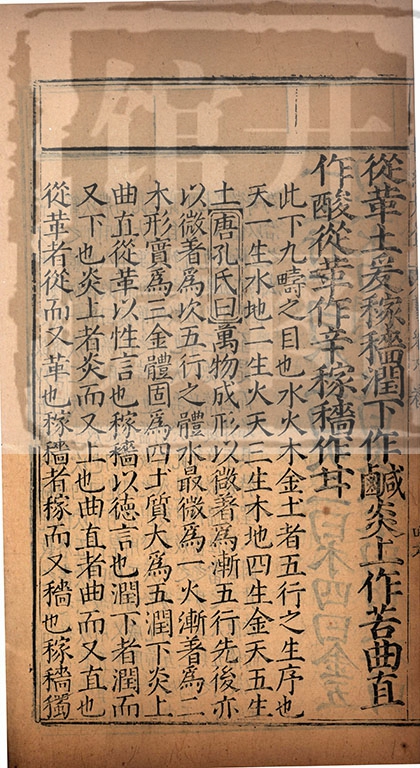 從革土爰稼穡潤下作鹹炎上作苦曲直
作酸從革作辛稼穡作甘
此下九疇之目也水火木金土者五行之生序也
天一生水地二生火天三生木地四生金天五生
土唐孔氏曰萬物成形以微著為漸五行先後亦
以微著為次五行之體水最微為一火漸著為二
木形實為三金體固為四土質大為五潤下炎上
曲直從革以性言也稼穡以德言也潤下者潤而
又下也炎上者炎而又上也曲直者曲而又直也
從革者從而又革也稼穡者稼而又穡也稼穡獨